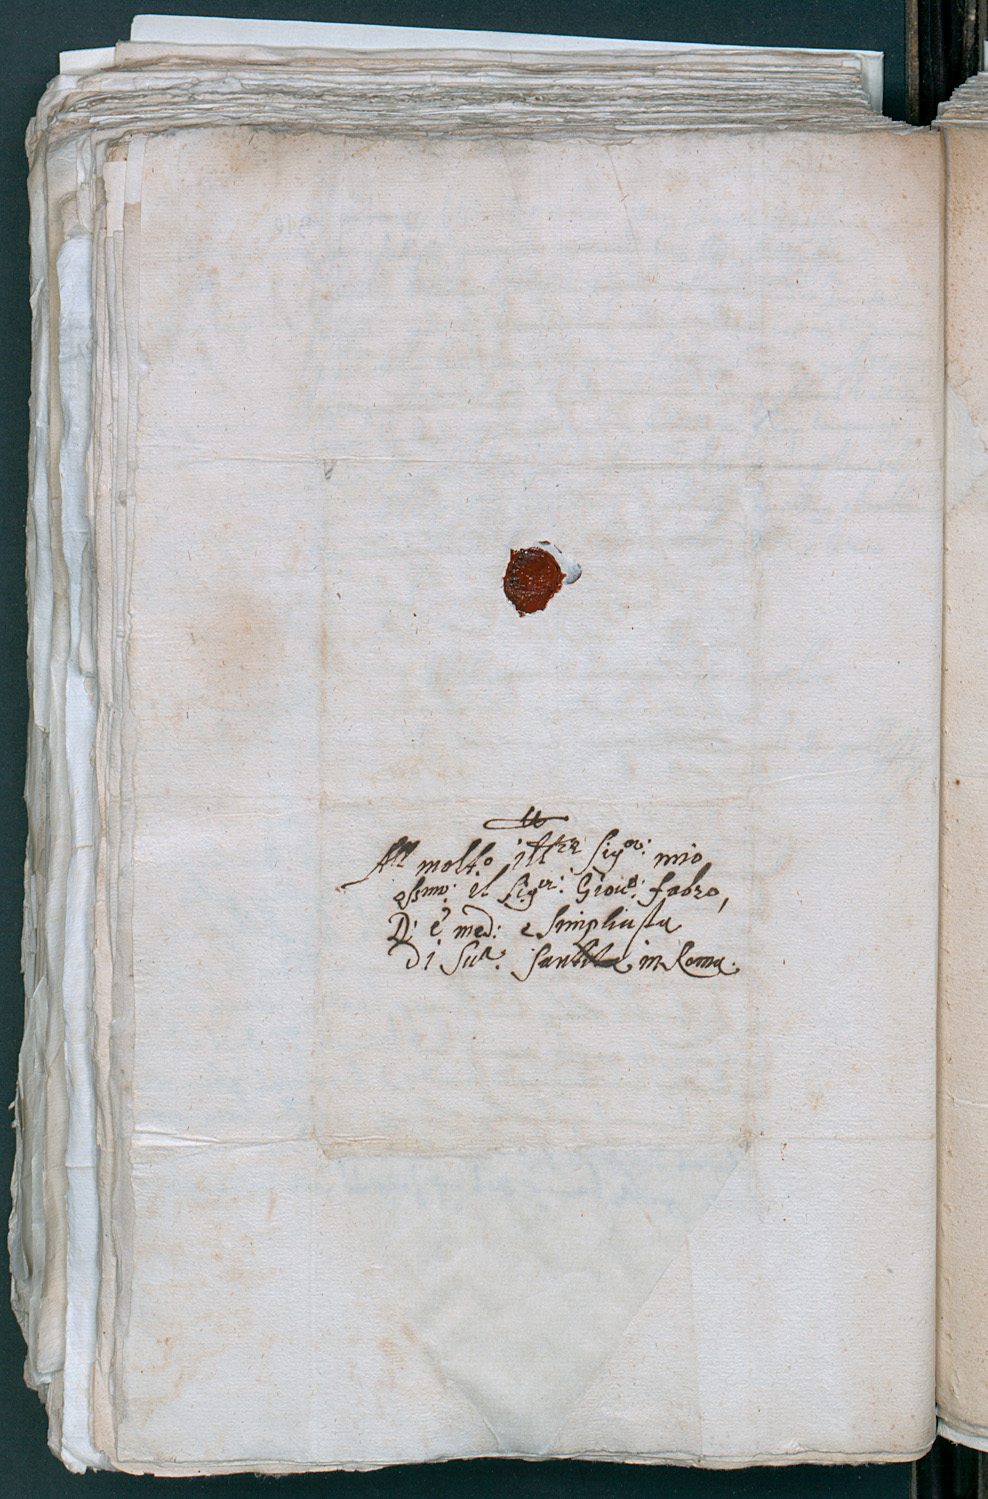 All molto ill.re Sig.or: mio
ess.mo: il Sig.or: Giou: fabro,
D: è med: e Simplicista
di Sua. Santita in Roma.